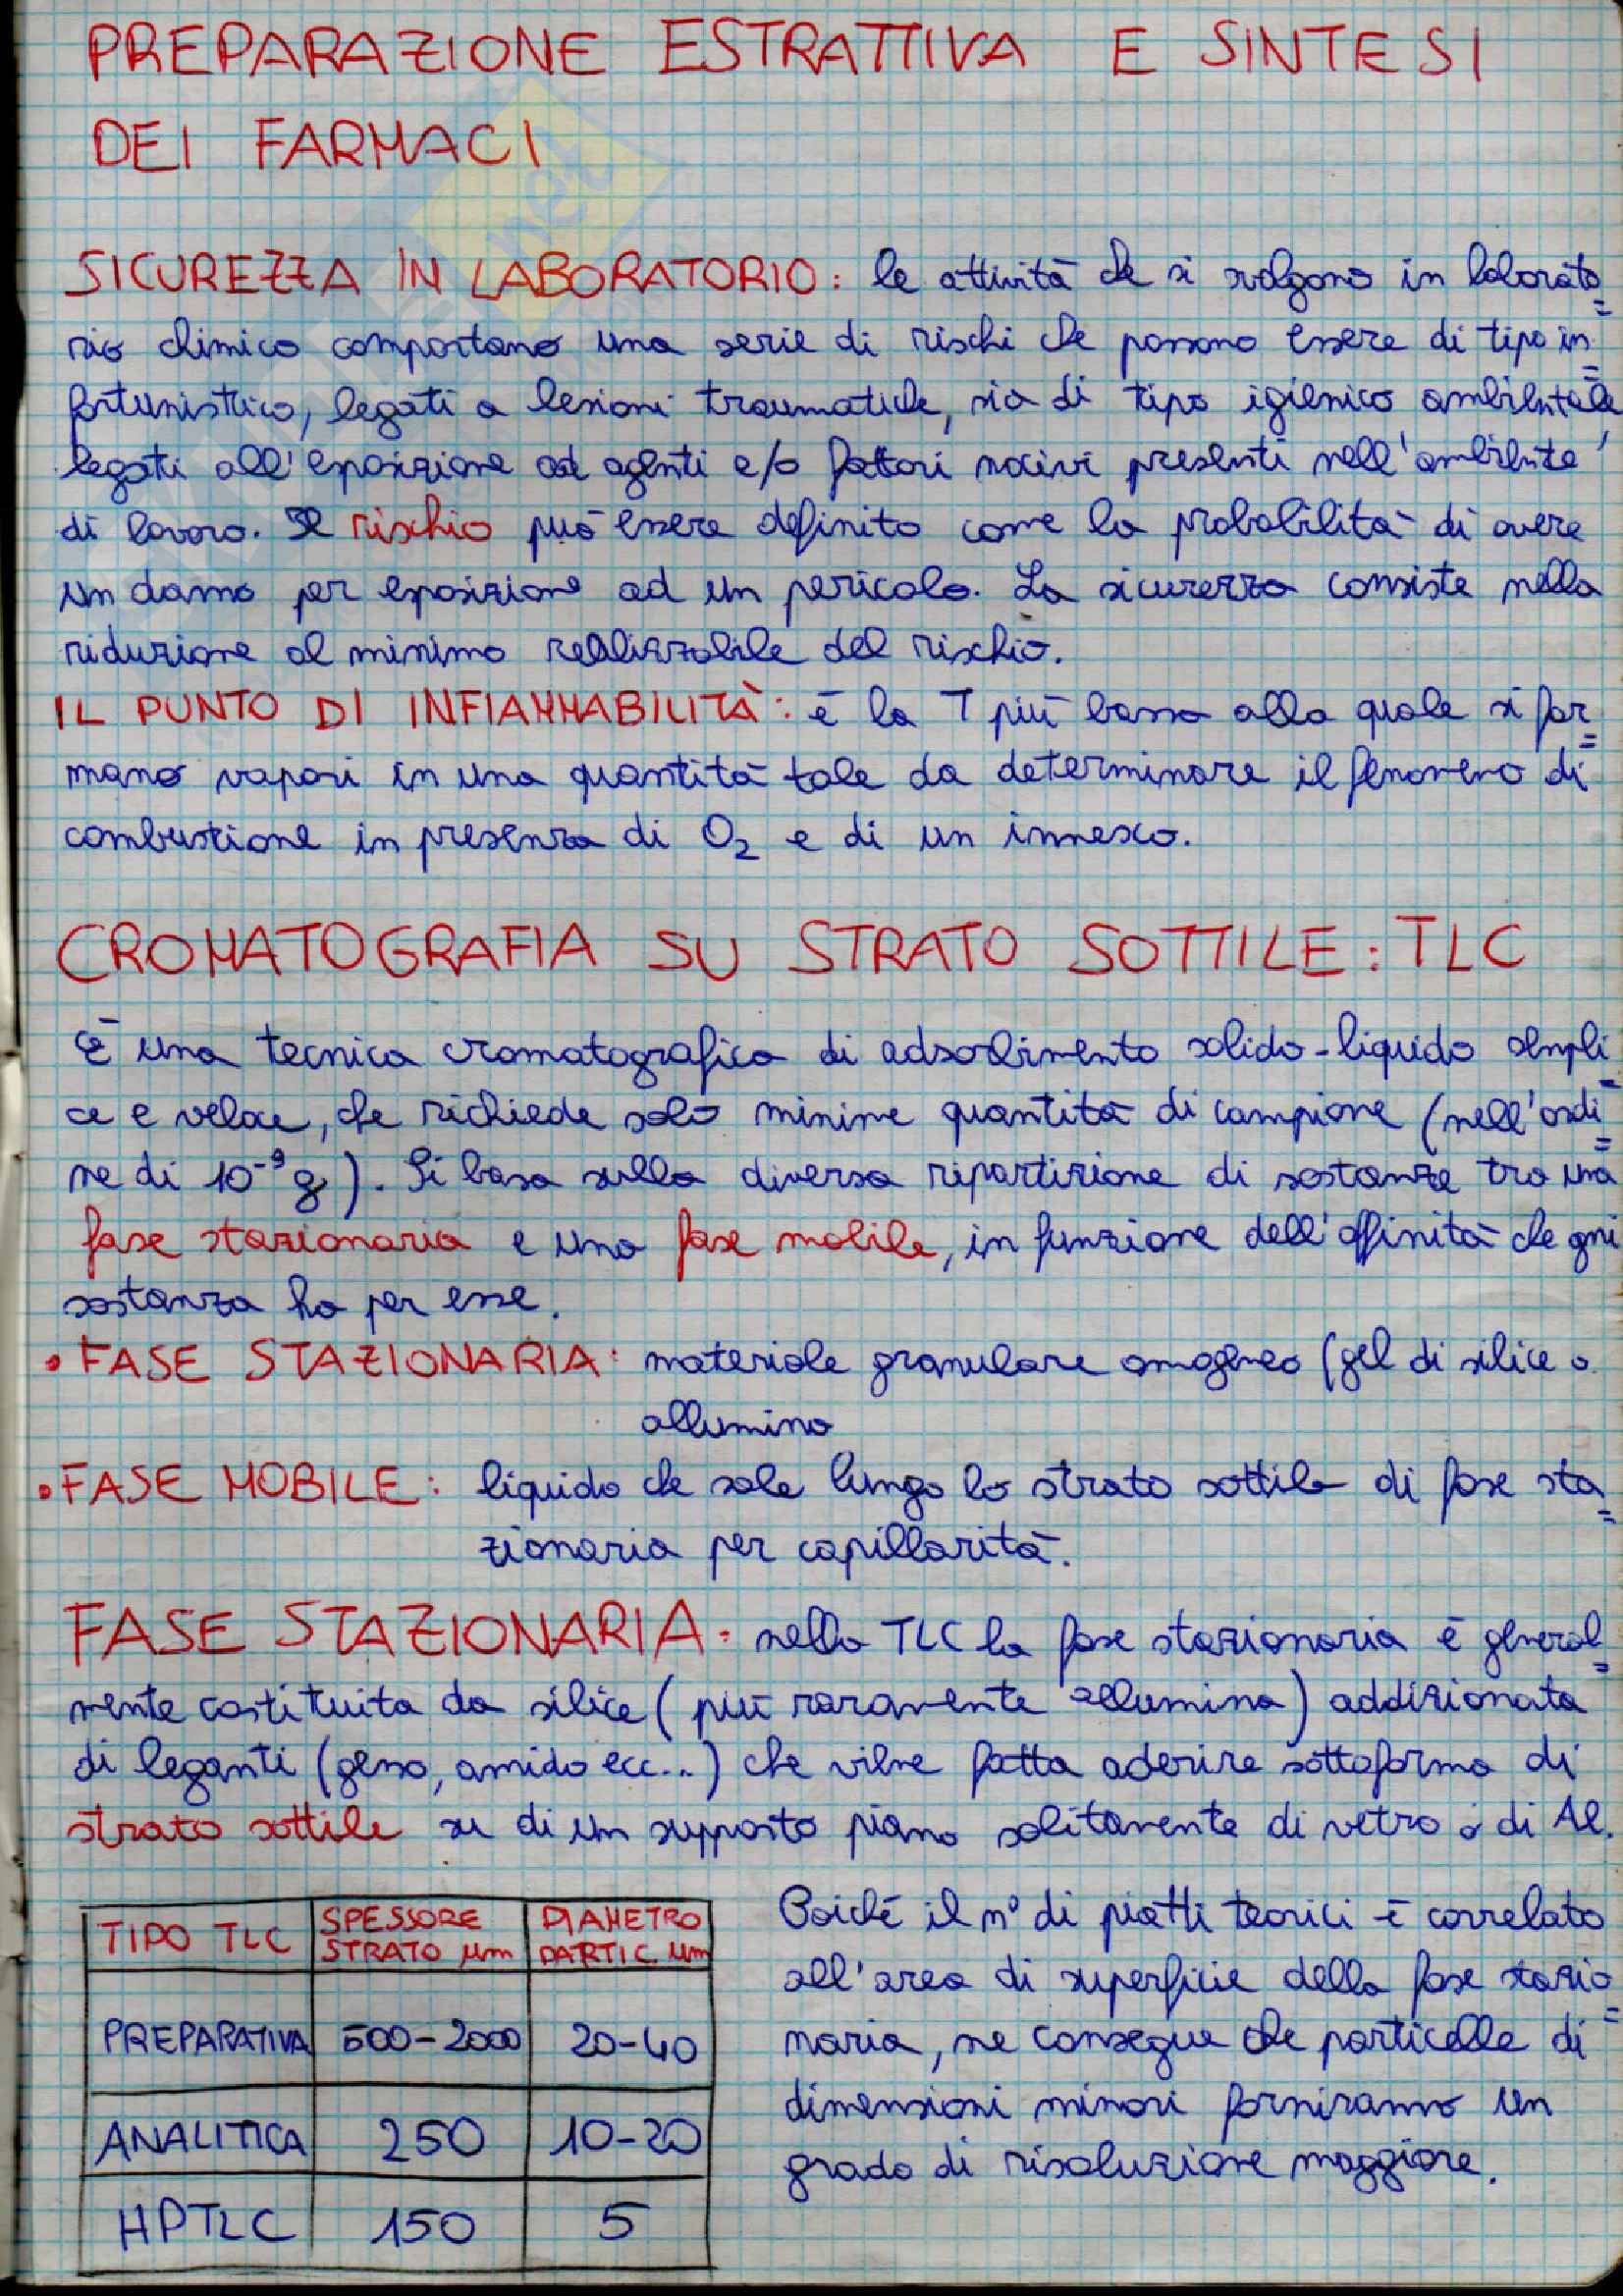 PREPARAZIONE ESTRATTIVA E SINTESI
DEI FARMACI
SICUREZZA IN LABORATORIO: le attività che si svolgono in laborato=
rio chimico comportano una serie di rischi che possono essere di tipo in=
fortunistico, legati a lesioni traumatiche, sia di tipo igienico ambientale,
legati all'esposizione ad agenti e/o fattori nocivi presenti nell'ambiente
di lavoro. Il rischio può essere definito come la probabilità di avere
un danno per esposizione ad un pericolo. La sicurezza consiste nella
riduzione al minimo realizzabile del rischio.
IL PUNTO DI INFIAMMABILITÀ: è la T più bassa alla quale si for=
mano vapori in una quantità tale da determinare il fenomeno di
combustione in presenza di O₂ e di un innesco.
CROMATOGRAFIA SU STRATO SOTTILE: TLC
È una tecnica cromatografica di adsorbimento solido-liquido sempli=
ce e veloce, che richiede solo minime quantità di campione (nell'ordi=
ne di 10⁻⁹ g). Si basa sulla diversa ripartizione di sostanze tra una
fase stazionaria e una fase mobile, in funzione dell'affinità che ogni
sostanza ha per esse.
• FASE STAZIONARIA: materiale granulare omogeneo (gel di silice o
allumina
• FASE MOBILE: liquido che sale lungo lo strato sottile di fase sta=
zionaria per capillarità.
FASE STAZIONARIA: nella TLC la fase stazionaria è general=
mente costituita da silice (più raramente allumina) addizionata
di leganti (gesso, amido ecc...) che viene fatta aderire sottoforma di
strato sottile su di un supporto piano solitamente di vetro o di Al.
TIPO TLC SPESSORE STRATO μm DIAMETRO PARTIC. μm
PREPARATIVA 500-2000 20-40
ANALITICA 250 10-20
HPTLC 150 5
Poiché il n° di piatti teorici è correlato
all'area di superficie della fase stazio=
naria, ne consegue che particelle di
dimensioni minori forniranno un
grado di risoluzione maggiore.